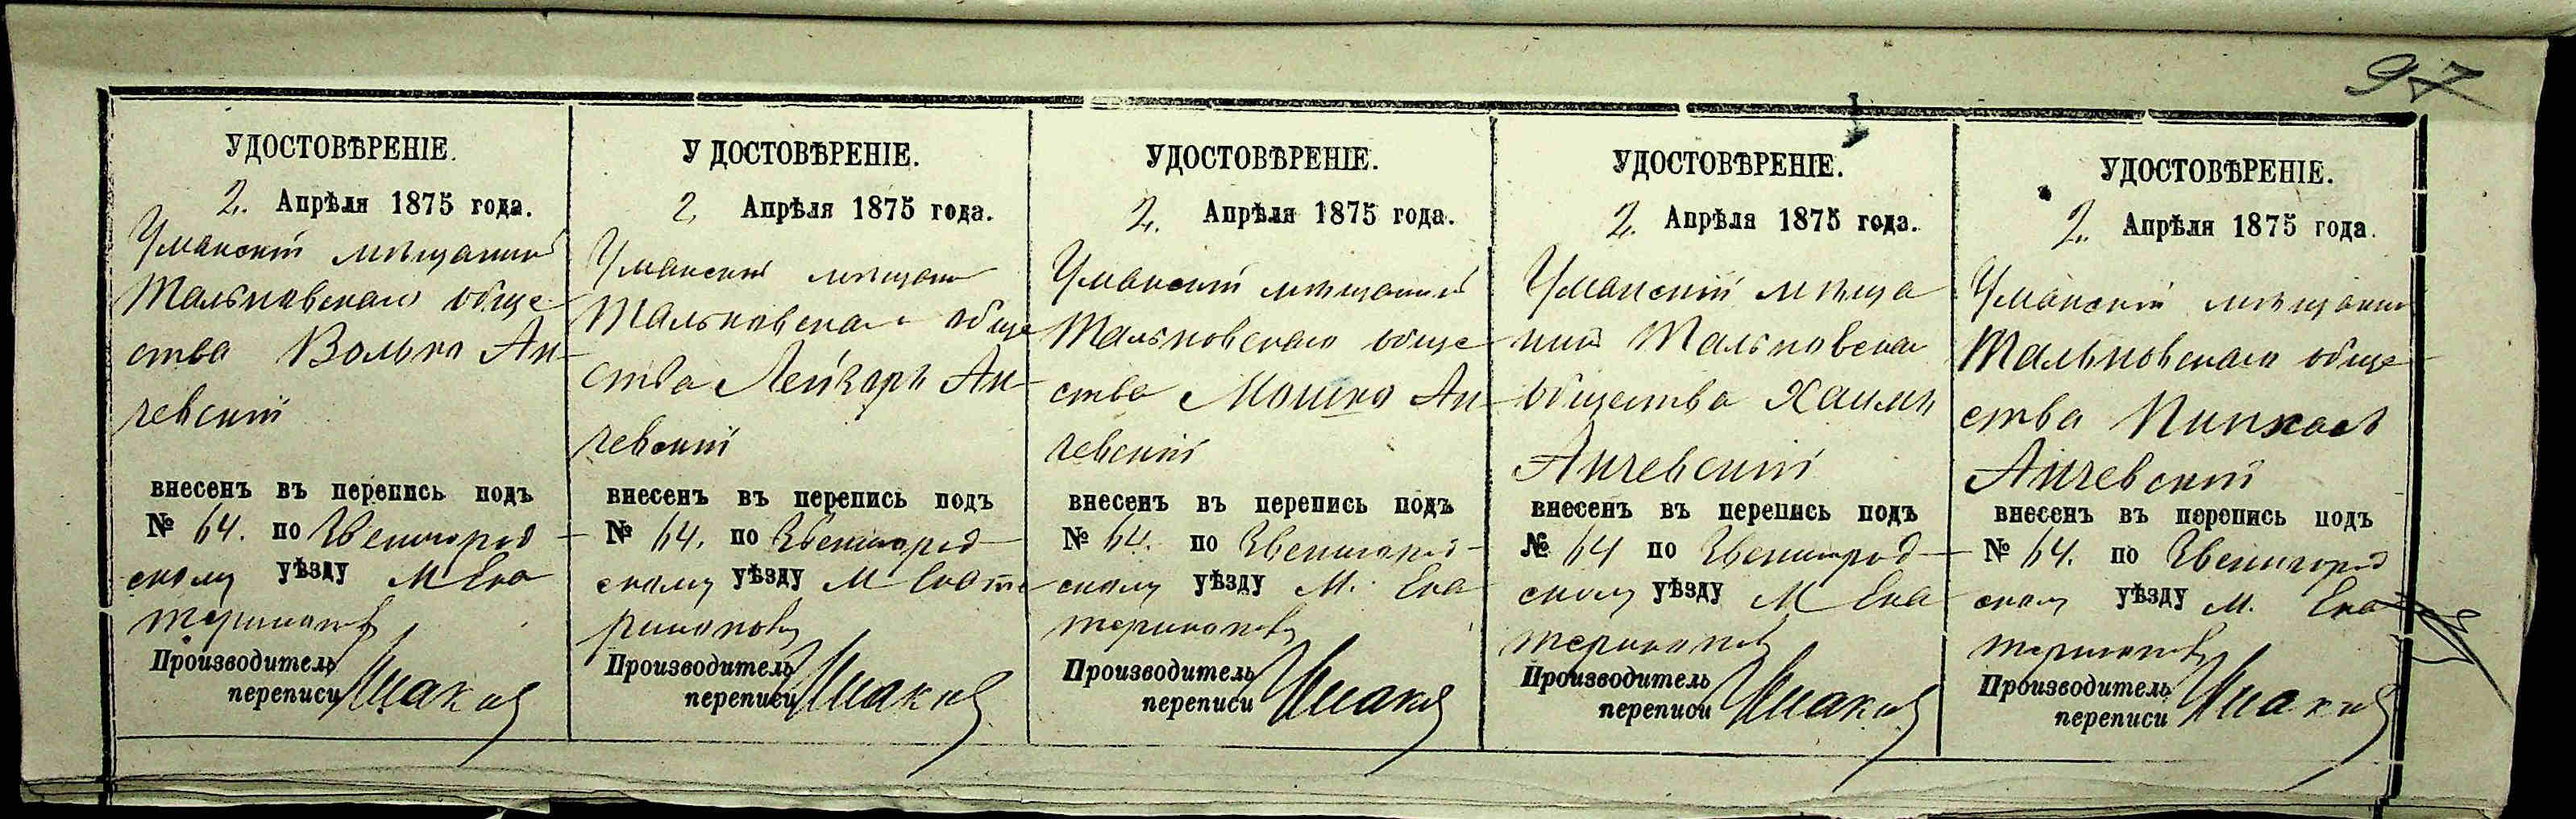 97
УДОСТОВѢРЕНІЕ.
2. Апрѣля 1875 года.
Уманскій мѣщанинъ
Тальновскаго обще-
ства Волько Ан-
чевскій
внесенъ въ перепись подъ
№ 64. по Звенигород-
скому уѣзду М Ека
теринополь
Производитель
переписи
У ДОСТОВѢРЕНІЕ.
2. Апрѣля 1875 года.
Уманскій мѣщанин
Тальновскаго обще
ства Лейзоръ Ан-
чевскій
внесенъ въ перепись подъ
№ 64. по Звенигород-
скому уѣзду М Екате
ринополь
Производитель
переписи
УДОСТОВѢРЕНІЕ.
2. Апрѣля 1875 года.
Уманскій мѣщанинъ
Тальновскаго обще
ства Мошко Ан-
чевскій
внесенъ въ перепись подъ
№ 64. по Звенигород-
скому уѣзду М. Ека
теринополь
Производитель
переписи
УДОСТОВѢРЕНІЕ.
2. Апрѣля 1875 года.
Уманскій мѣща
нинъ Тальновскаго
общества Хаимъ
Анчевскій
внесенъ въ перепись подъ
№ 64 по Звенигород-
скому уѣзду М Ека
теринополь
Производитель
переписи
УДОСТОВѢРЕНІЕ.
2. Апрѣля 1875 года.
Уманскій мѣщанин
Тальновскаго обще
ства Пинхасъ
Анчевскій
внесенъ въ перепись подъ
№ 64. по Звенигород
скому уѣзду М. Ека
теринополь
Производитель
переписи